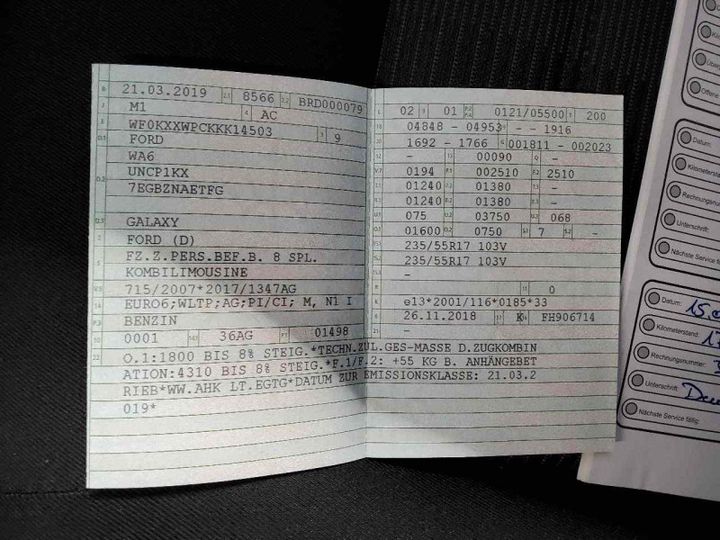 B 21.03.2019 2.1 8566 2.2 BRD000079
J M1 4 AC
E WF0KXXWPCKKK14503 3 9
D.1 FORD
D.2 WA6
UNCP1KX
7EGBZNAETFG
D.3 GALAXY
2 FORD (D)
5 FZ.Z.PERS.BEF.B. 8 SPL.
KOMBILIMOUSINE
V.9 715/2007*2017/1347AG
14 EURO6;WLTP;AG;PI/CI; M, N1 I
P.3 BENZIN
10 0001 14.1 36AG P.1 01498
L 02 9 01 P.2 P.4 0121/05500 T 200
18 04848 - 04953 - - 1916
20 1692 - 1766 G 001811 - 002023
12 - 13 00090 Q -
V.7 0194 F.1 002510 F.2 2510
7.1 01240 01380 -
8.1 01240 01380 -
U.1 075 U.2 03750 U.3 068
O.1 01600 O.2 0750 S.1 7 S.2 -
15.1 235/55R17 103V
15.2 235/55R17 103V
15.3 -
R - 11 0
K e13*2001/116*0185*33
6 26.11.2018 17 K 16 FH906714
22 O.1:1800 BIS 8% STEIG.*TECHN.ZUL.GES-MASSE D.ZUGKOMBIN
ATION:4310 BIS 8% STEIG.*F.1/F.2: +55 KG B. ANHÄNGEBET
RIEB*WW.AHK LT.EGTG*DATUM ZUR EMISSIONSKLASSE: 21.03.2
019*
Datum:
Kilometerstand:
Rechnungsnummer:
Unterschrift:
Nächste Service fällig:
Datum:
Kilometerstand:
Rechnungsnummer:
Unterschrift:
Nächste Service fällig: